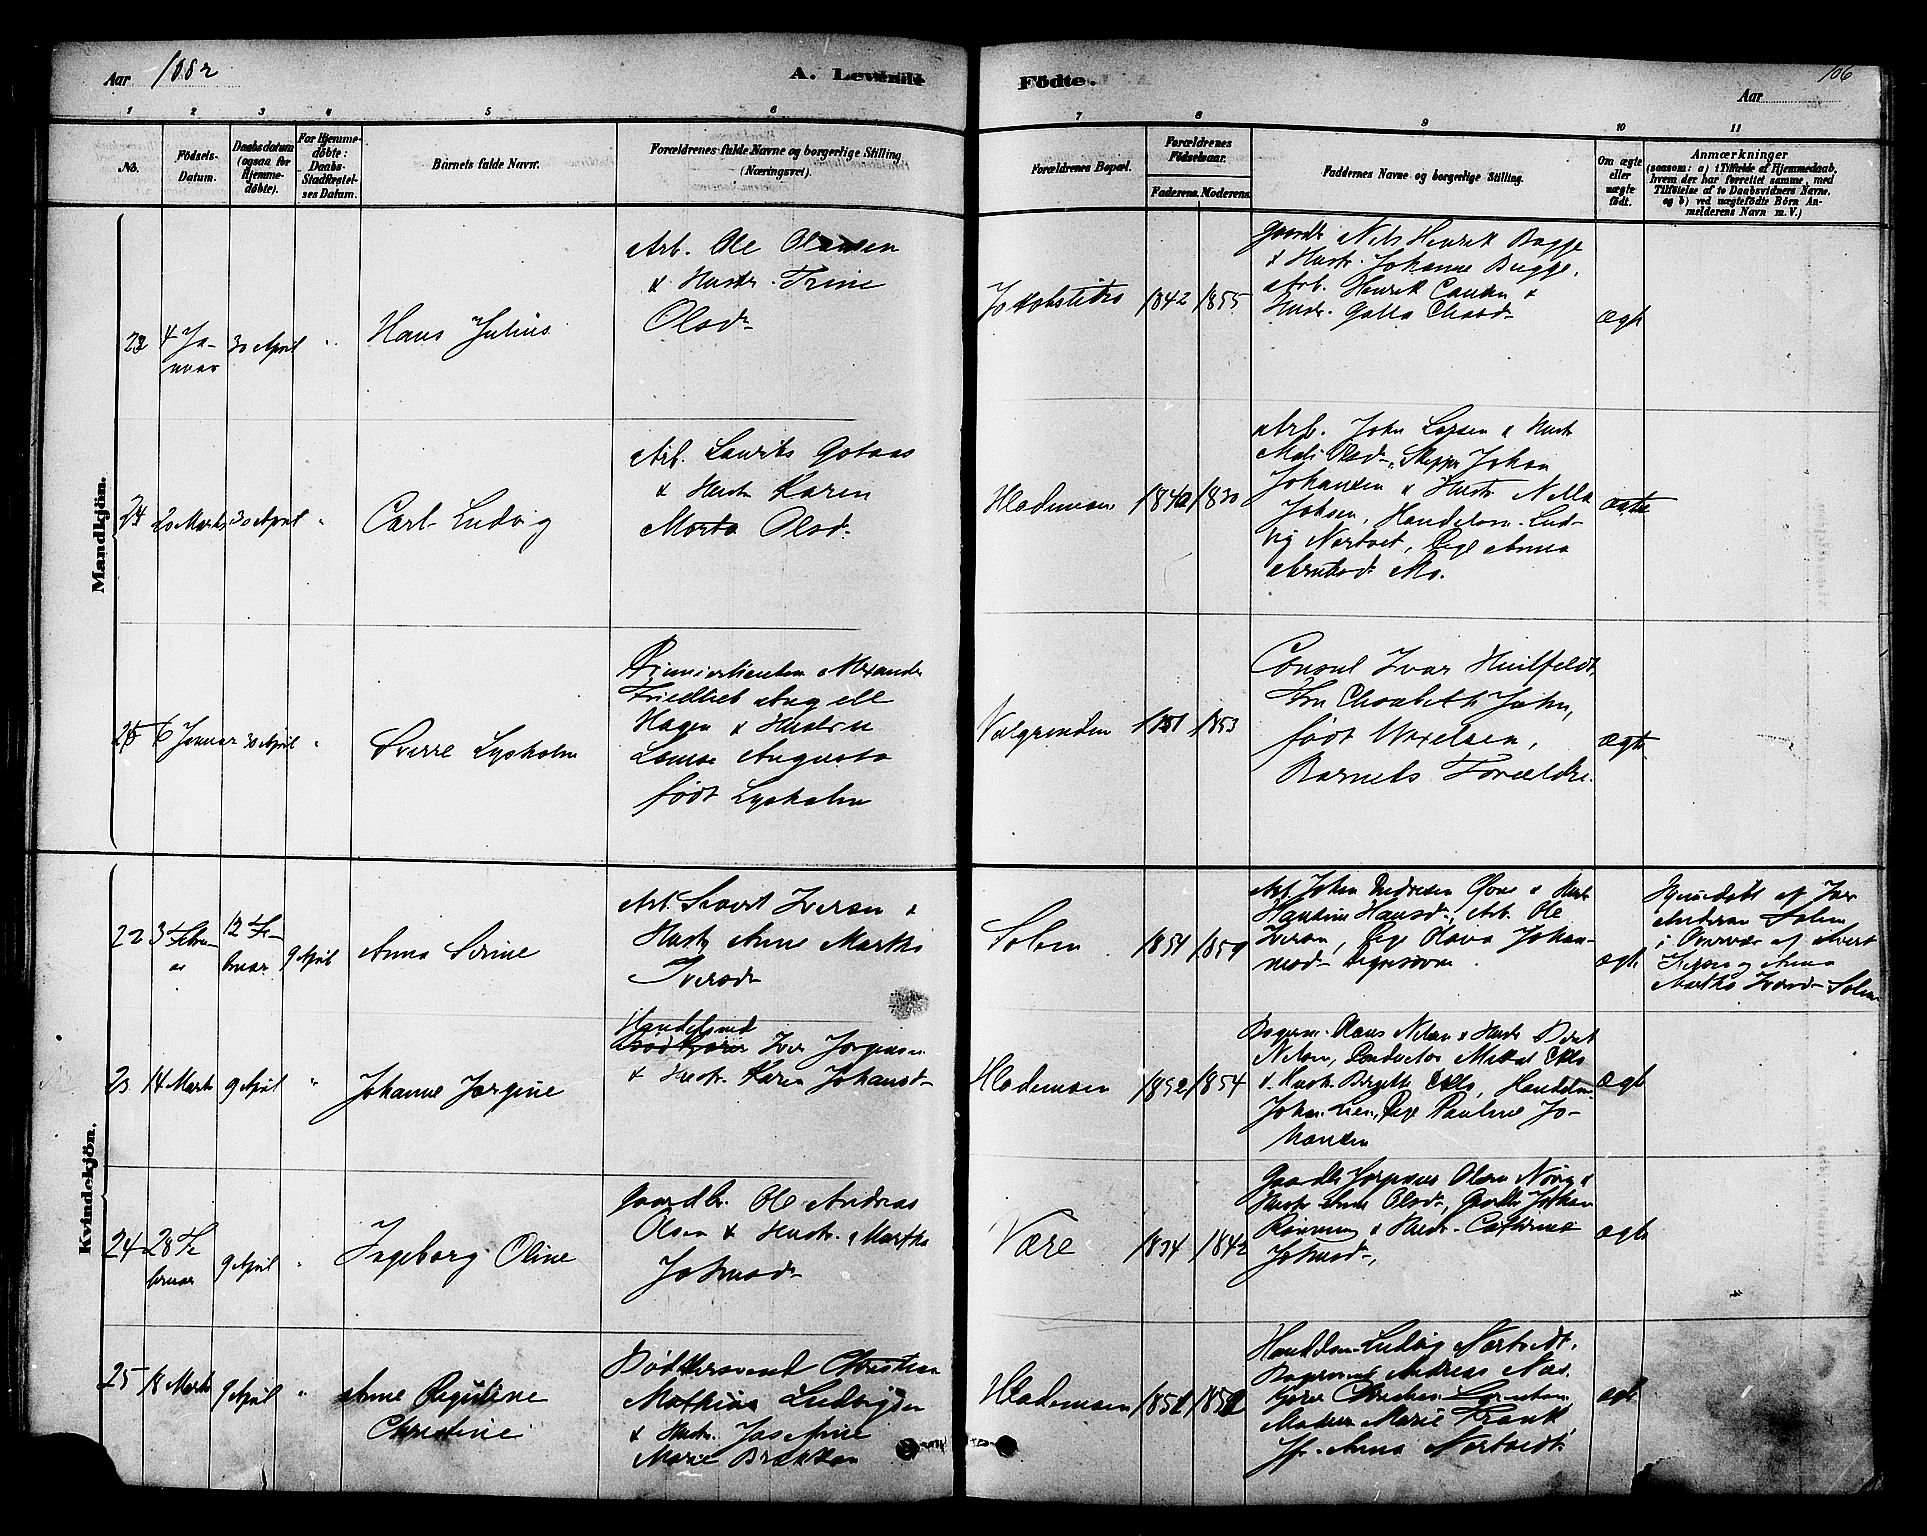 Aar 1882
A. Levende
Födte.
106
Aar
1 2 3 4 5 6 7 8 9 10 11
No.
Födsels-
Datum.
Daabsdatum
(ogsaa for
Hjemme-
döbte).
For Hjemme-
döbte:
Daabs-
Stadfæstel-
ses Datum.
Barnets fulde Navn.
Forældrenes fulde Navne og borgerlige Stilling
(Næringsvei).
Forældrenes Bopæl.
Forældrenes
Födselsaar.
Faderens. Moderens.
Faddernes Navne og borgerlige Stilling.
Om ægte
eller
uægte
födt.
Anmærkninger
(saasom: a) i Tilfælde af Hjemmedaab,
hvem der har forrettet samme, med
Tilföielse af to Daabsvidners Navne,
og b) ved uægtefödte Börn An-
melderens Navn m. V.)
Mandkjön.
23
4 Ja-
nuar
30 April
Hans Julius
Arb. Ole Olsen
& Hustr. Trine
Olsd.
1842 1855
Gaardbr. Nels Henrik Bugge
& Hustr. Johanne Bugge,
Arb. Henrik &
Hustr.
ægte
24
20 Marts
30 April
Carl Ludvig
Arb. Laurits Gotaas
& Hustr. Karen
Marta Olsd.
Hlademoen
1840 1830
Arb. John Larsen & Hustr.
Mali Olsd., Skipper Johan
Johansen & Hustr.
Johsen, Handelsm. Lud-
vig Nortvet, Pige Anna
Arntsd. Mo.
ægte
25
6 Januar
30 April
Sverre Lysholm
Premierlieutenn Alexander
Friedlieb Angell
Hagen & Hustru
Louise Augusta
født Lysholm
Volgrenden
1851 1853
Consul Ivar Huitfeldt,
Fru Elisabeth Jahn,
født Wexelsen,
Barnets Forældre.
ægte
Kvindekjön.
22
3 Febru-
ar
12 Fe-
bruar
9 April
Anna Serine
Arb. Sivert Iversen &
Hustr. Anne Martha
Iversd.
Solem
1854 1859
Arb. Johan Andresen &
Hustr. Hansd., Arb. Ole
Iversen, Pige Olava Johan-
nesd.
ægte
Hjemmedøbt af Iver
Andersen Solem
i Overvær af Sivert
Iversen og Anna
Martha Iversd. Solem
23
14 Marts
9 April
Johanne Jørgine
Handelsmd
Iver Jørgensen
& Hustr. Karen Johansd.
Hlademoen
1852 1854
Bagerm. Claus Nilsen & Hustr. Beret
Nilsen, Conductør Mikal
& Hustr. Birgitte Handelsm.
John Lien, Pige Pauline Jo-
hansen
ægte
24
28 Fe-
bruar
9 April
Ingeborg Oline
Gaardbr. Ole Andreas
Olsen & Hustr. Martha
Johnsd.
Være
1834 1842
Gaardbr. Jørginus Olsen &
Hustr. Olsd., Gaardbr. Johan
& Hustr. Cathrine
Johnsd.,
ægte
25
18 Marts
9 April
Anne Reguline
Christine
Bødkersvend Christian
Mathias Ludvigsen
& Hustr. Josefine
Marie Brækken
Hlademoen
1851 1852
Handelsm. Ludvig Nortvedt,
Bagersvend Andreas
Christian
Marie Frank
Jfr. Anna Nortvedt
ægte